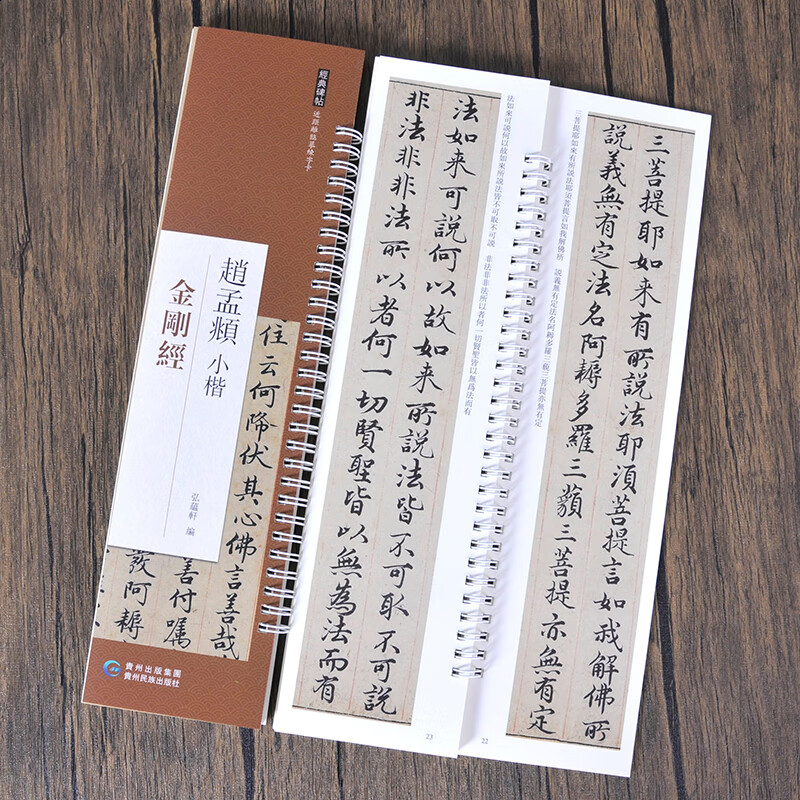 經典碑帖
近距離臨摹練字卡
趙孟頫 小楷
金剛經
弘蘊軒 編
住云何降伏其心佛言善哉
善付囑
發阿耨
貴州出版集團
貴州民族出版社
三菩提耶如来有所說法耶須菩提言如我解佛所
說義無有定法名阿耨多羅三藐三菩提亦無有定
三菩提耶如來有所說法耶須菩提言如我解佛所 說義無有定法名阿耨多羅三藐三菩提亦無有定
22
法如来可說何以故如来所說法皆不可取不可說
非法非非法所以者何一切賢聖皆以無為法而有
法如來可說何以故如來所說法皆不可取不可說 非法非非法所以者何一切賢聖皆以無爲法而有
23